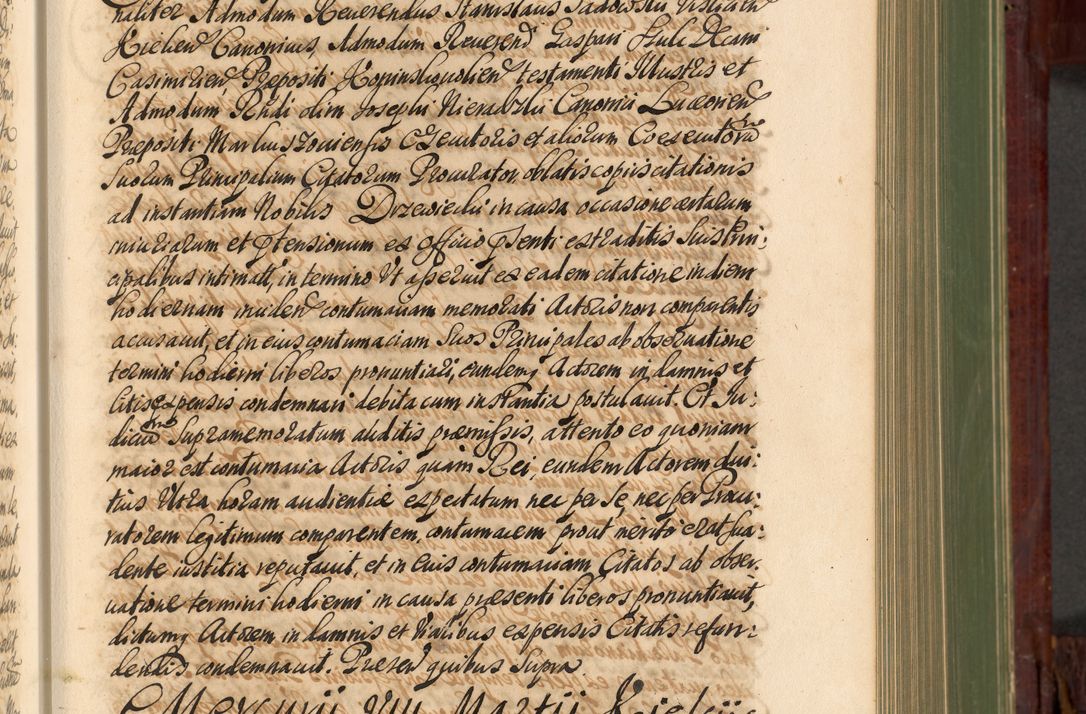 naliter Admodum Reverendus Stanislaus Sadowski
Kielcen Canonicus, Admodum Reverend Gaspari Szulc Decani
Casimirien, Præpositi testamenti Illustris et
Admodum Rndi olim Josephi Nieradzki Canonici Luceorien
Præpositi Markuszoviensis Executoris et aliorum Coexecutorum
Suorum Principalium Citatorum Procurator oblatis copiis citationis
ad instantiam Nobilis Drzewiecki in causa occasione certarum
iniuriarum et ptensionum ex officio psenti extraditis Suis Prin:
cipalibus intimatt, in termino Ut asseruit ex eadem citatione in diem
hodiernam inciden contumaciam memorati Actoris non comparentis
accusavit, et in eius contumaciam Suos Principales ab observatione
termini hodierni liberos pronuntiari, eundemq Actorem in damnis et
litis expensis condemnari debita cum instantia postulavit. Et Ju:
dicium Supramemoratum auditis præmissis, attento eo quoniam
maior est contumacia Actoris quam Rei, eundem Actorem diu:
tius Ultra horam audientiæ expectatum nec per se nec per Procu:
ratorem legitimum comparentem, contumacem prout merito erat sua:
dente iustitia reputavit, et in Eius contumaciam Citatos ab obser:
vatione termini hodierni in causa præsenti liberos pronuntiavit,
dictumq Actorem in damnis et vialibus expensis Citatis refun:
dendis condemnavit. Presen quibus Supra
Mercurii VIII Martii Kielciis